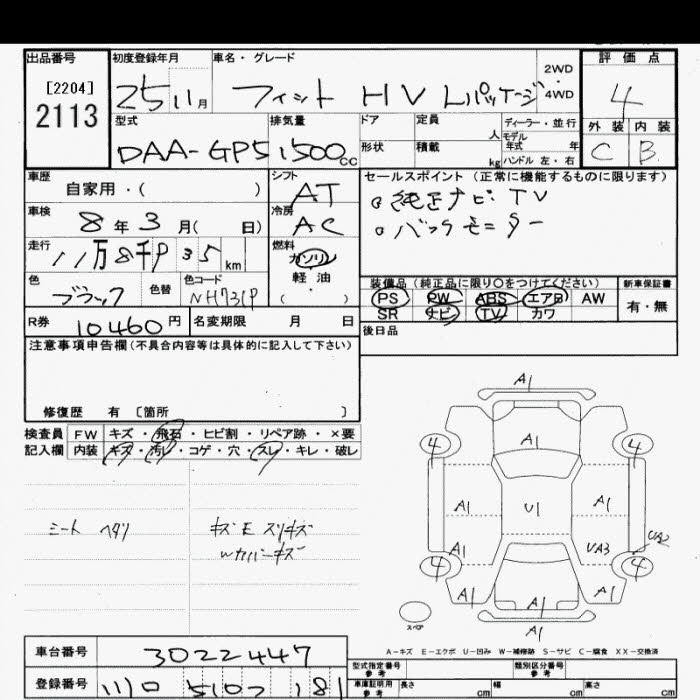 出品番号 初度登録年月 車名・グレード 2WD・4WD 評価点
[2204]
2113 25 11月 フィット HV Lパッケージ 4
型式 排気量 ドア 定員 人 ディーラー・並行 外装 内装
DAA-GP5 1500cc 形状 積載 kg モデル年式 年 ハンドル 左・右 C B
車歴 自家用・( ) シフト AT セールスポイント(正常に機能するものに限ります)
車検 8年3月( 日) 冷房 AC 純正ナビ TV
バックモニター
走行 11万8千 35 km 燃料 ガソリン
軽油
( ・ )
色 ブラック 色替 色コード NH731P
装備品(純正品に限り○をつけてください) 新車保証書
PS PW ABS エアB AW 有・無
SR ナビ TV カワ
R券 10460円 名変期限 月 日 後日品
注意事項申告欄(不具合内容等は具体的に記入して下さい)
修復歴 有 〔箇所 〕
検査員 FW キズ・飛石・ヒビ割・リペア跡・×要
記入欄 内装 キズ・汚レ・コゲ・穴・スレ・キレ・破レ
A1
4 A1 4
A1 U1 A1
A1 UA3 UA2
4 4
A1 A1 A1
A1
スペア
A-キズ E-エクボ U-凹み W-補修跡 S-サビ C-腐食 XX-交換済
車台番号 3022447
登録番号
型式指定番号 参考 類別区分番号 参考
車庫証明用 参考 長さ cm 幅 cm 高さ cm